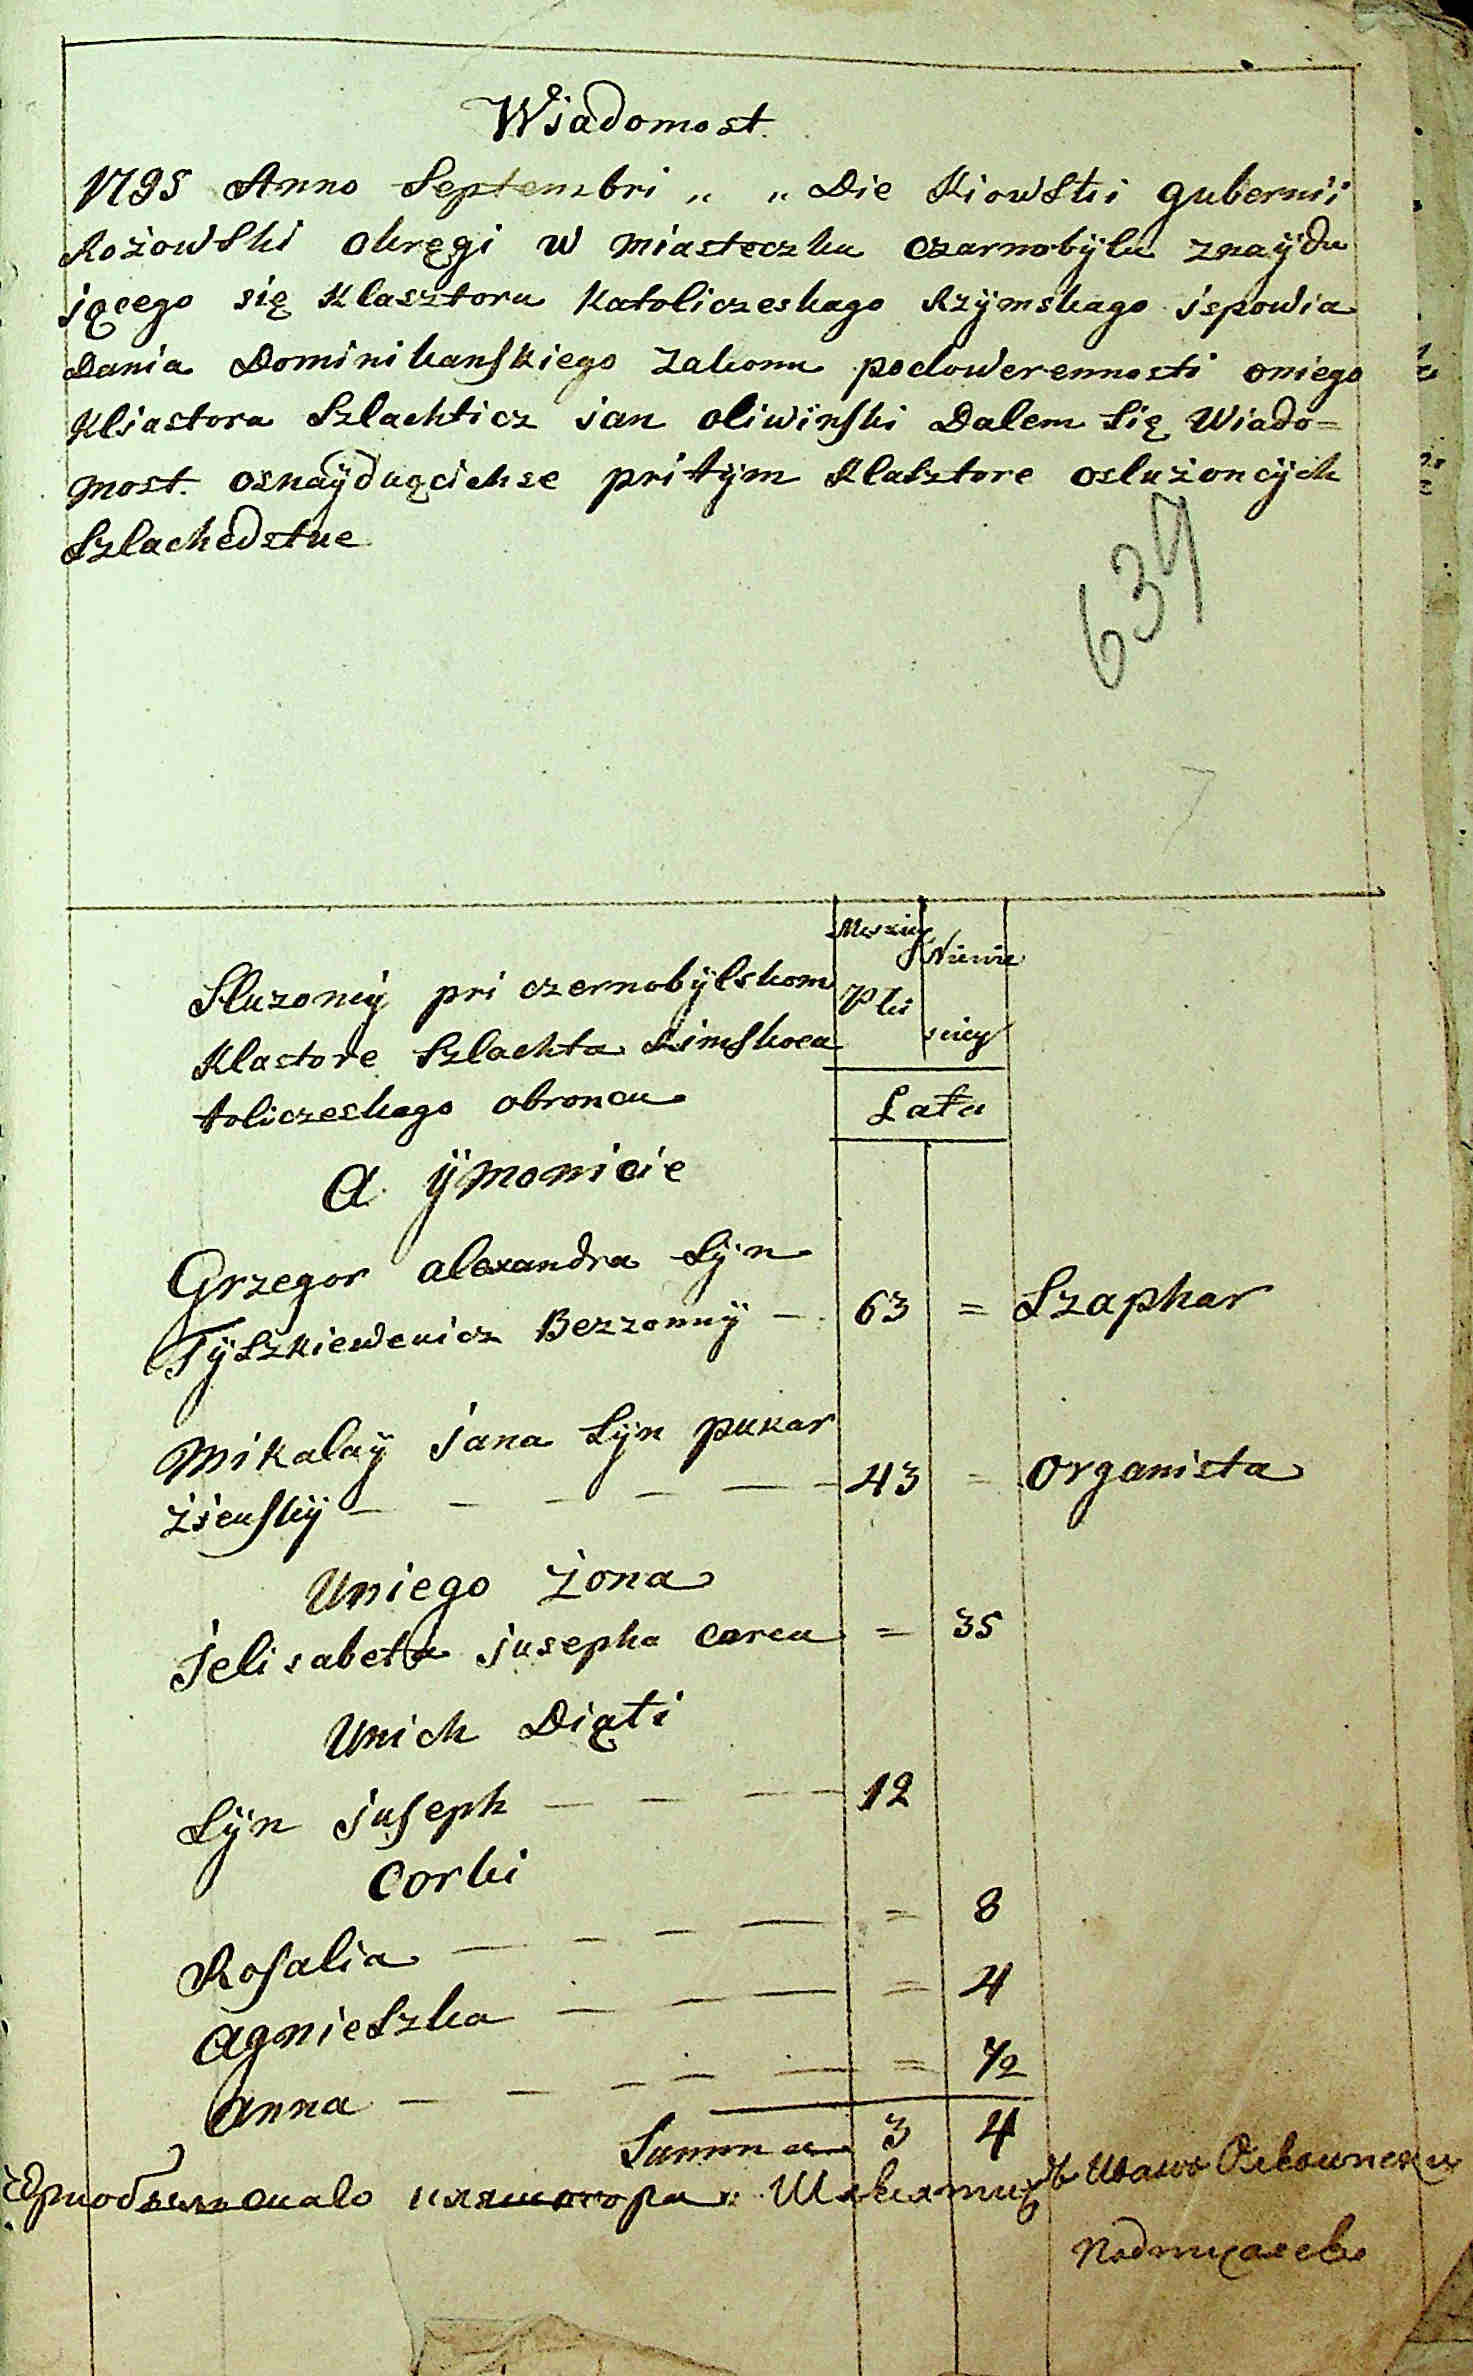 Wiadomost.
1795 Anno Septembri „ „ Die Kiowski gubernii
Rożowski okręgi w miasteczku czarnobÿlu znaÿdu
jącego się Klasztoru Katoliczeskago Rzÿmskago ispowia
Dania Dominikanskiego Zakonu podowerennosti oniego
Kliastora Szlachticz jan oliwinski Dalem Się Wiado=
most. osnaÿduącichse pri tÿm Klasztore oslużoncÿch
Szlachedstue
637
Sluzoncÿ pri czernobÿlskom
Klastore Szlachta Rimskoca
toliczeskago obroncu
Męzkiy
Płci
Niewie
sciey
Lata
A ÿmonicie
Grzegor alexandra Sÿn
Tÿszkiewenicz Bezzonnÿ — 63 = Szaphar
Mikalaÿ jana Sÿn pukar
żienskÿ — — — — — 43 = Organista
Uniego żona
jelisabeta jusepha corca = 35
Unich Diąti
Sÿn juseph — — — 12
Corki
Rosalia — — — — = 8
agnieszka — — — = 4
anna — — — — — = 1/2
Summa 3 4
Чернобылскаго кляштора Шляхтичъ Иванъ Оливинский
Подписалсь